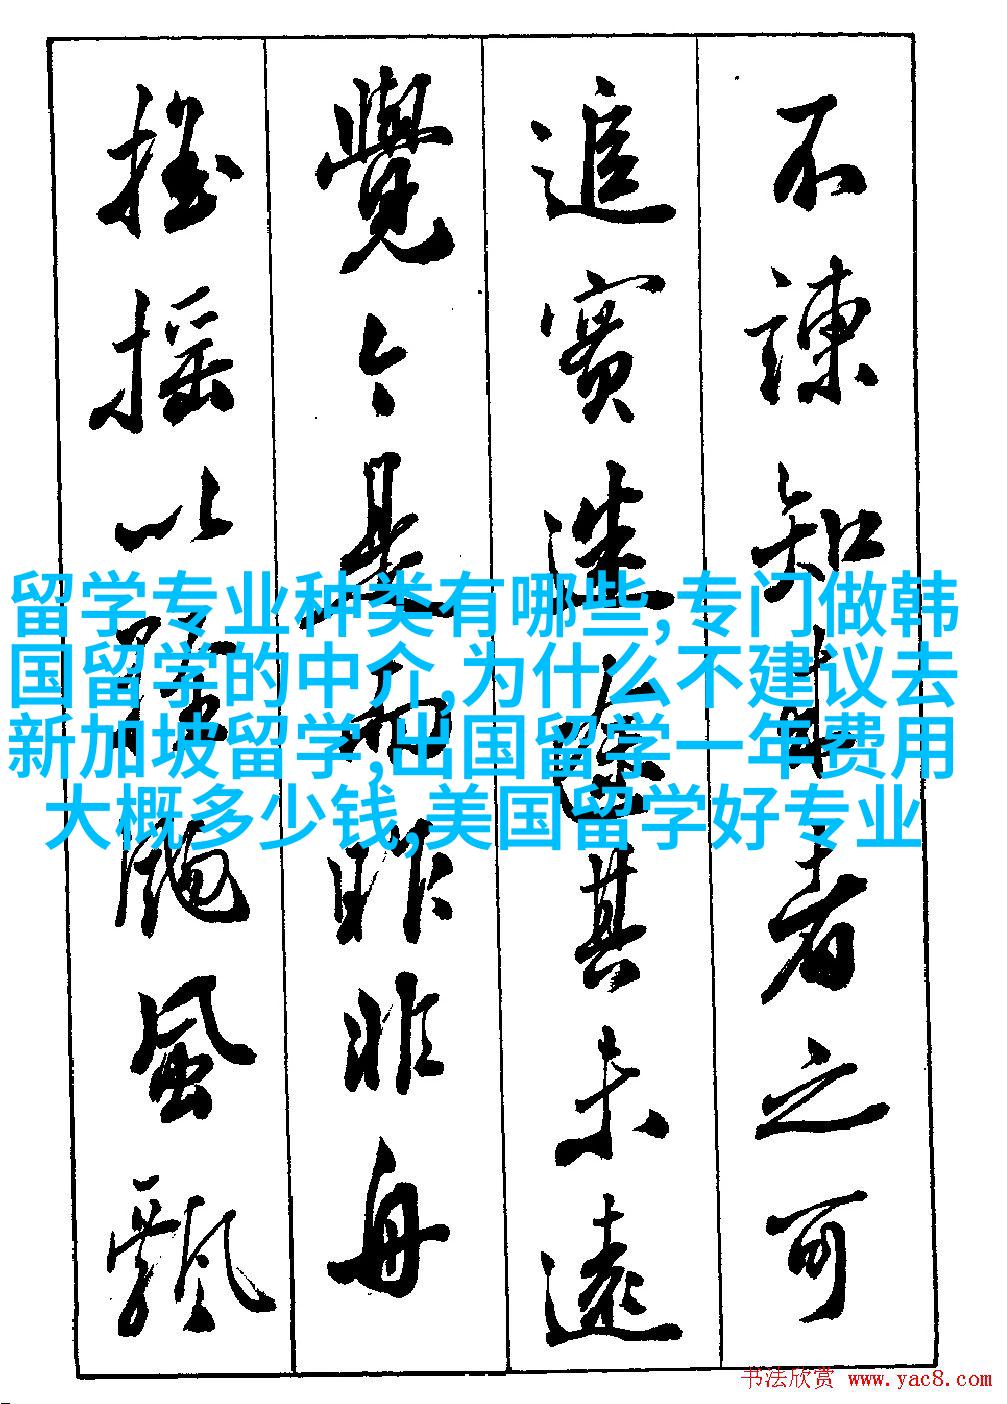 不諫知來者之可
追實迷途其未遠
覺今是而昨非舟
搖搖以輕颺風飄
留学专业种类有哪些,专门做韩
国留学的中介,为什么不建议去
新加坡留学,出国留学一年费用
大概多少钱,美国留学好专业
书法欣赏 www.yac8.com